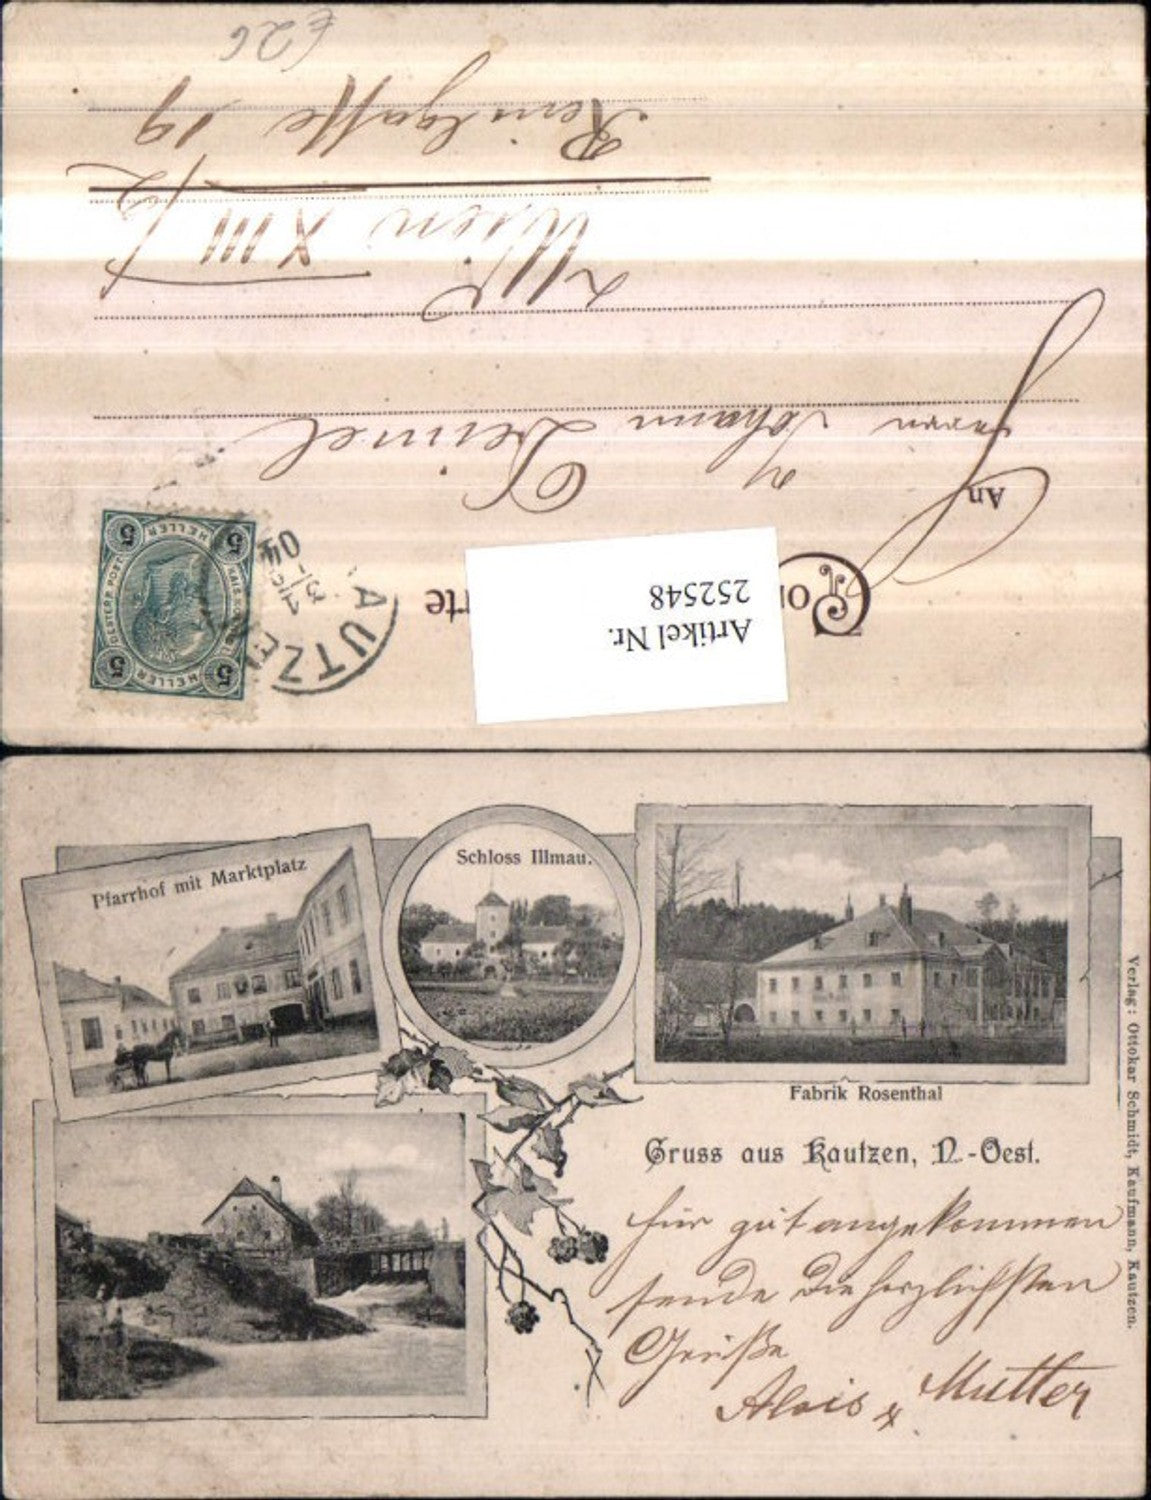 €26
Artikel Nr.
252548
An
Herrn Johann Deimel
Wien XIII/2
gasse 19
5 5
HELLER
HELLER
5 5
AUTZE
1/3
04
Pfarrhof mit Marktplatz
Schloss Illmau.
Fabrik Rosenthal
Gruss aus Kautzen, N.-Oest.
für gut angekommen
sende die herzlichsten
Grüße
Alois & Mutter
Verlag: Ottokar Schmidt, Kaufmann, Kautzen.